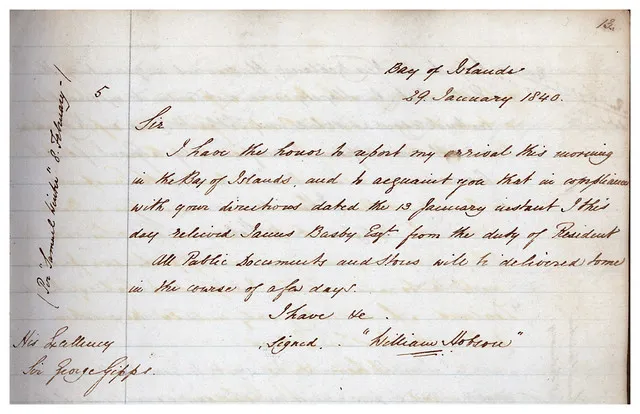 12.
Bay of Islands
29 January 1840.
5
Sir
I have the honor to report my arrival this morning
in the Bay of Islands, and to acquaint you that in compliance
with your directions dated the 13 January instant I this
day relieved James Busby Esqr from the duty of Resident
All Public Documents and Stores will be delivered to me
in the course of a few days.
I have &c.
Signed. "William Hobson"
His Excellency
Sir George Gipps.
(Per "Samuel Winter" 8. February-)